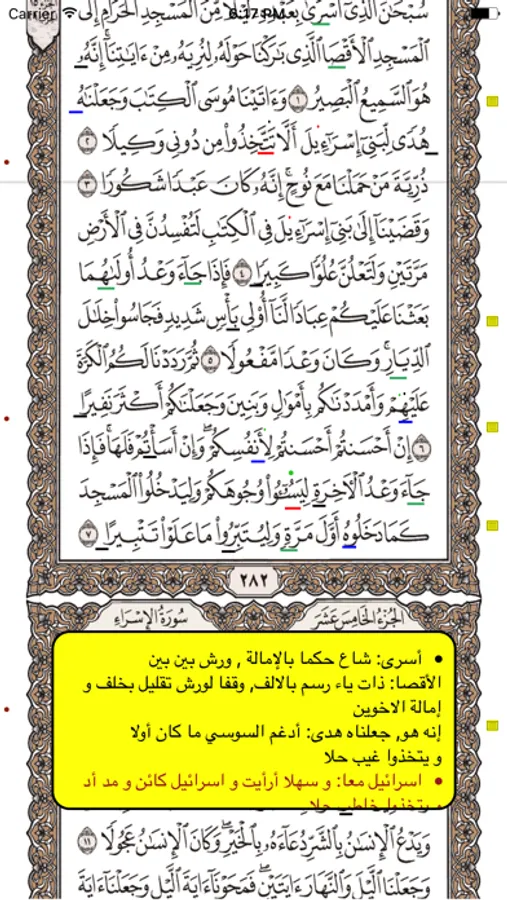 Carrier 6:17 PM
سُبْحَٰنَ ٱلَّذِىٓ أَسْرَىٰ مِّنَ ٱلْمَسْجِدِ ٱلْحَرَامِ إِلَى
ٱلْمَسْجِدِ ٱلْأَقْصَا ٱلَّذِى بَٰرَكْنَا حَوْلَهُۥ لِنُرِيَهُۥ مِنْ ءَايَٰتِنَآ ۚ إِنَّهُۥ
هُوَ ٱلسَّمِيعُ ٱلْبَصِيرُ ١ وَءَاتَيْنَا مُوسَى ٱلْكِتَٰبَ وَجَعَلْنَٰهُ
هُدًى لِّبَنِىٓ إِسْرَٰٓءِيلَ أَلَّا تَتَّخِذُوا۟ مِن دُونِى وَكِيلًا ٢
ذُرِّيَّةَ مَنْ حَمَلْنَا مَعَ نُوحٍ ۚ إِنَّهُۥ كَانَ عَبْدًا شَكُورًا ٣
وَقَضَيْنَآ إِلَىٰ بَنِىٓ إِسْرَٰٓءِيلَ فِى ٱلْكِتَٰبِ لَتُفْسِدُنَّ فِى ٱلْأَرْضِ
مَرَّتَيْنِ وَلَتَعْلُنَّ عُلُوًّا كَبِيرًا ٤ فَإِذَا جَآءَ وَعْدُ أُولَىٰهُمَا
بَعَثْنَا عَلَيْكُمْ عِبَادًا لَّنَآ أُو۟لِى بَأْسٍ شَدِيدٍ فَجَاسُوا۟ خِلَٰلَ
ٱلدِّيَارِ ۚ وَكَانَ وَعْدًا مَّفْعُولًا ٥ ثُمَّ رَدَدْنَا لَكُمُ ٱلْكَرَّةَ
عَلَيْهِمْ وَأَمْدَدْنَٰكُم بِأَمْوَٰلٍ وَبَنِينَ وَجَعَلْنَٰكُمْ أَكْثَرَ نَفِيرًا
٦ إِنْ أَحْسَنتُمْ أَحْسَنتُمْ لِأَنفُسِكُمْ ۖ وَإِنْ أَسَأْتُمْ فَلَهَا ۚ فَإِذَا
جَآءَ وَعْدُ ٱلْءَاخِرَةِ لِيَسُۥٓـُٔوا۟ وُجُوهَكُمْ وَلِيَدْخُلُوا۟ ٱلْمَسْجِدَ
كَمَا دَخَلُوهُ أَوَّلَ مَرَّةٍ وَلِيُتَبِّرُوا۟ مَا عَلَوْا۟ تَتْبِيرًا ٧
٢٨٢
الجُزْءُ الخَامِسَ عَشَرَ سُورَةُ الإِسْرَاءِ
● أسرى: شاع حكما بالإمالة , ورش بين بين
الأقصا: ذات ياء رسم بالالف, وقفا لورش تقليل بخلف و
إمالة الاخوين
إنه هو, جعلناه هدى: أدغم السوسي ما كان أولا
و يتخذوا غيب حلا
● اسرائيل معا: و سهلا أرأيت و اسرائيل كائن و مد أد
و يتخذوا خاطب حلا
وَيَدْعُ ٱلْإِنسَٰنُ بِٱلشَّرِّ دُعَآءَهُۥ بِٱلْخَيْرِ ۖ وَكَانَ ٱلْإِنسَٰنُ عَجُولًا ١١
وَجَعَلْنَا ٱلَّيْلَ وَٱلنَّهَارَ ءَايَتَيْنِ ۖ فَمَحَوْنَآ ءَايَةَ ٱلَّيْلِ وَجَعَلْنَآ ءَايَةَ